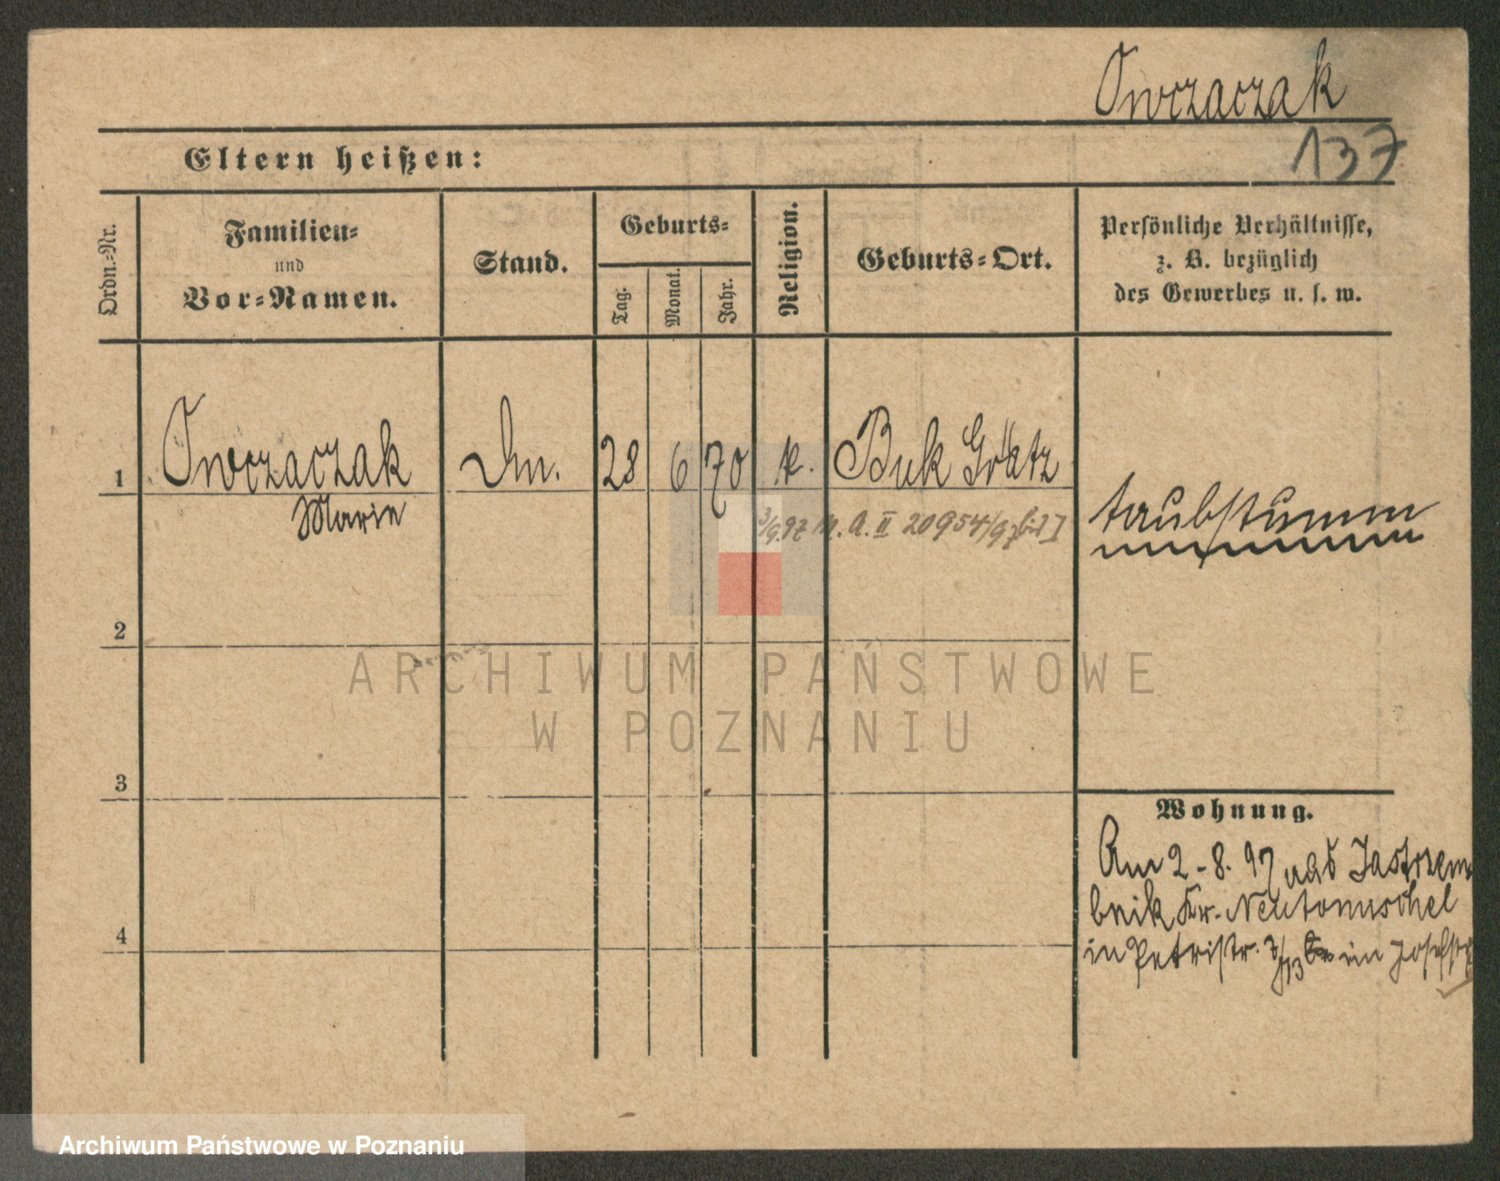 Owczaczak
137
Eltern heißen:
Ordn.-Nr.
Familien-
und
Vor-Namen.
Stand.
Geburts-
Tag.
Monat.
Jahr.
Religion.
Geburts-Ort.
Persönliche Verhältnisse,
z. B. bezüglich
des Gewerbes u. s. w.
1
Owczaczak
Marie
28
6
70
k.
Buk Grätz
taubstumm
3/9.97 M. A. II 20954/97
2
ARCHIWUM PAŃSTWOWE
W POZNANIU
3
Wohnung.
Am 2-8.97 nach Jastrzem
bnik Kr. Neutomischel
in Petristr. im
4
Archiwum Państwowe w Poznaniu